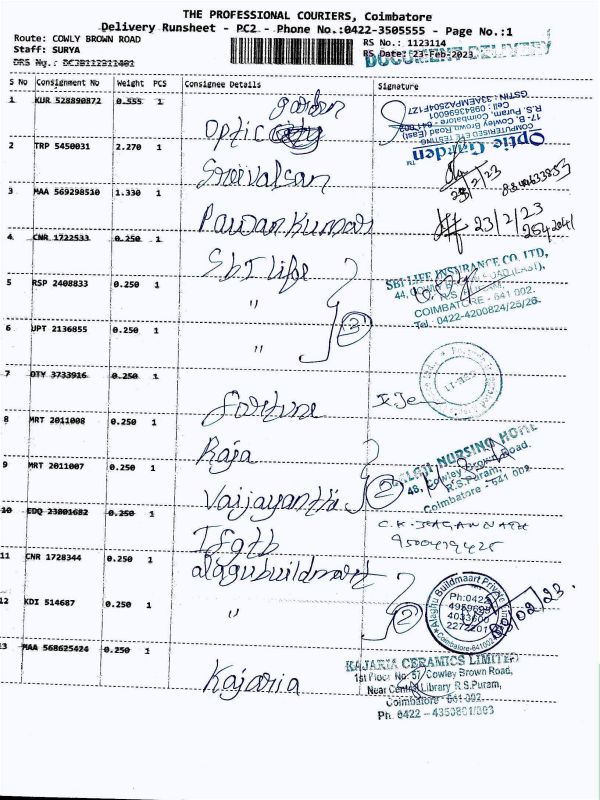 THE PROFESSIONAL COURIERS, Coimbatore
Delivery Runsheet - PC2 - Phone No.:0422-3505555 - Page No.:1
Route: COWLY BROWN ROAD
RS No.: 1123114
Staff: SURYA
RS Date: 23-Feb-2023
DOCUMENT DELIVERY
S No Consignment No Weight PCS Consignee Details Signature
1 KUR 528890872 0.555 1 Optic garden
Optic Garden
COMPUTERISED EYE TESTING
17-B, Cowley Brown Road (East)
R.S. Puram, Coimbatore - 641 002
Cell : 09843696001
GSTIN : 33AEMPA2504F1Z7
2 TRP 5450031 2.270 1 Sreevalsan
23/2/23
3 MAA 569298510 1.330 1 Pawan Kumar
23/2/23
4 CNR 1722533 0.250 1 SbI life
SBI LIFE INSURANCE CO. LTD,
R.S. PURAM,
COIMBATORE - 641 002.
Tel : 0422-4200824/25/26
5 RSP 2408833 0.250 1 "
6 UPT 2136855 0.250 1 "
3
7 DTY 3733916 0.250 1 fortune
8 MRT 2011008 0.250 1 Raja
NURSING HOME
48, Cowley Brown Road,
R.S.Puram,
Coimbatore - 641 002
9 MRT 2011007 0.250 1 Vaijayanthi
2
10 EDQ 23001682 0.250 1 Ifgtb
C.K. JAGANNATH
9500419425
11 CNR 1728344 0.250 1 alagubuildmart
12 KDI 514687 0.250 1 "
2
Alaghu Buildmaart Private
Ph:0422
4033600
2272201
Coimbatore-641002
23.02.23.
13 MAA 568625424 0.250 1 Kajaria
KAJARIA CERAMICS LIMITED
1st Floor No. 57, Cowley Brown Road,
Near Central Library R.S.Puram,
Coimbatore - 641 002
Ph. 0422 - 4350801/803